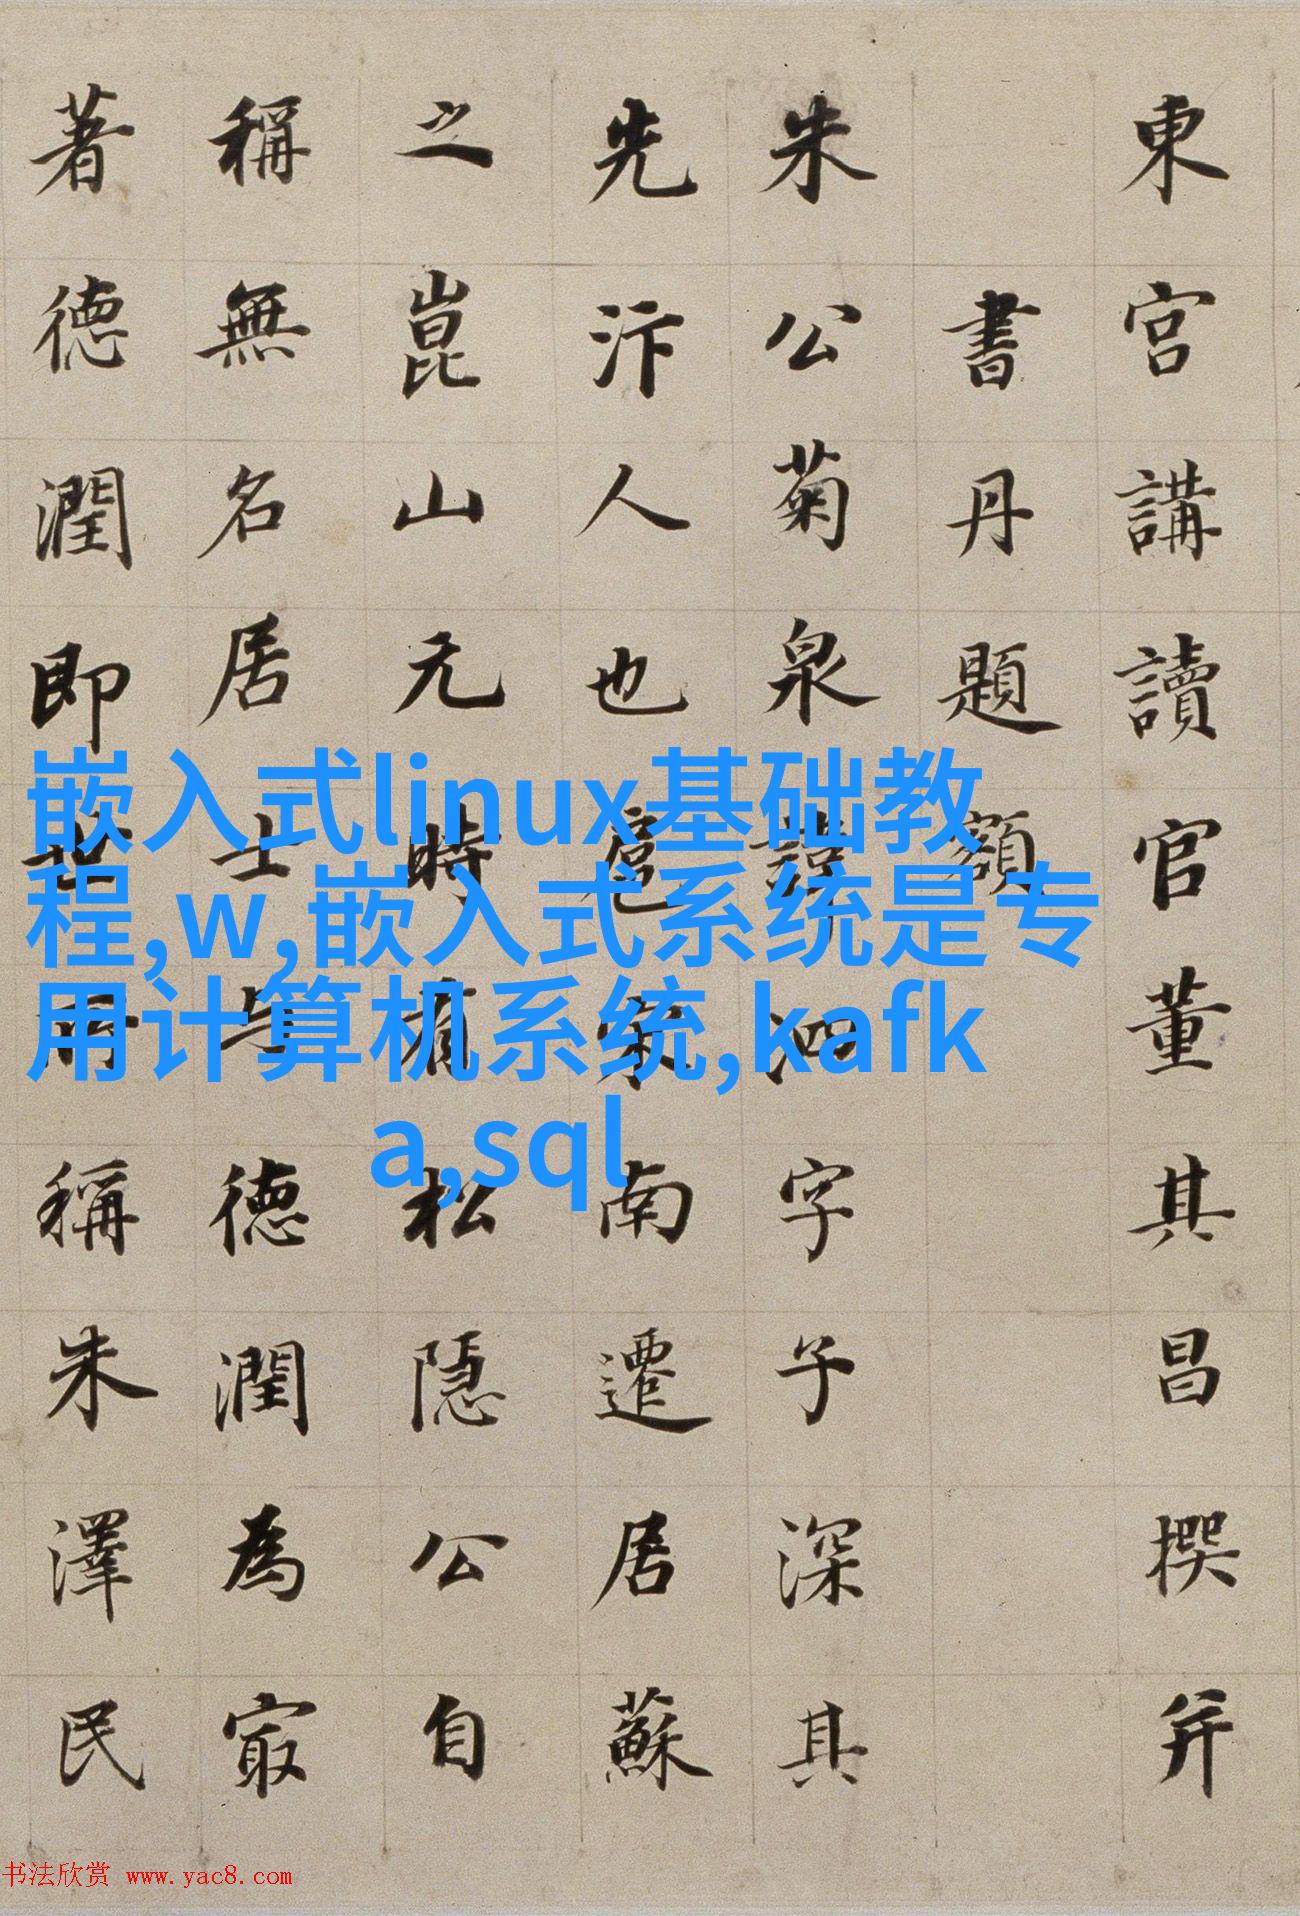 東宮講讀官董其昌撰并
書丹題額
朱公菊泉諱泗字子深其
先汴人也扈宋南遷居蘇
之崑山元時有松隱公自
稱無名居士与德潤為冣
著德潤即世所稱朱澤民
嵌入式linux基础教
程,w,嵌入式系统是专
用计算机系统,kafk
a,sql
书法欣赏 www.yac8.com